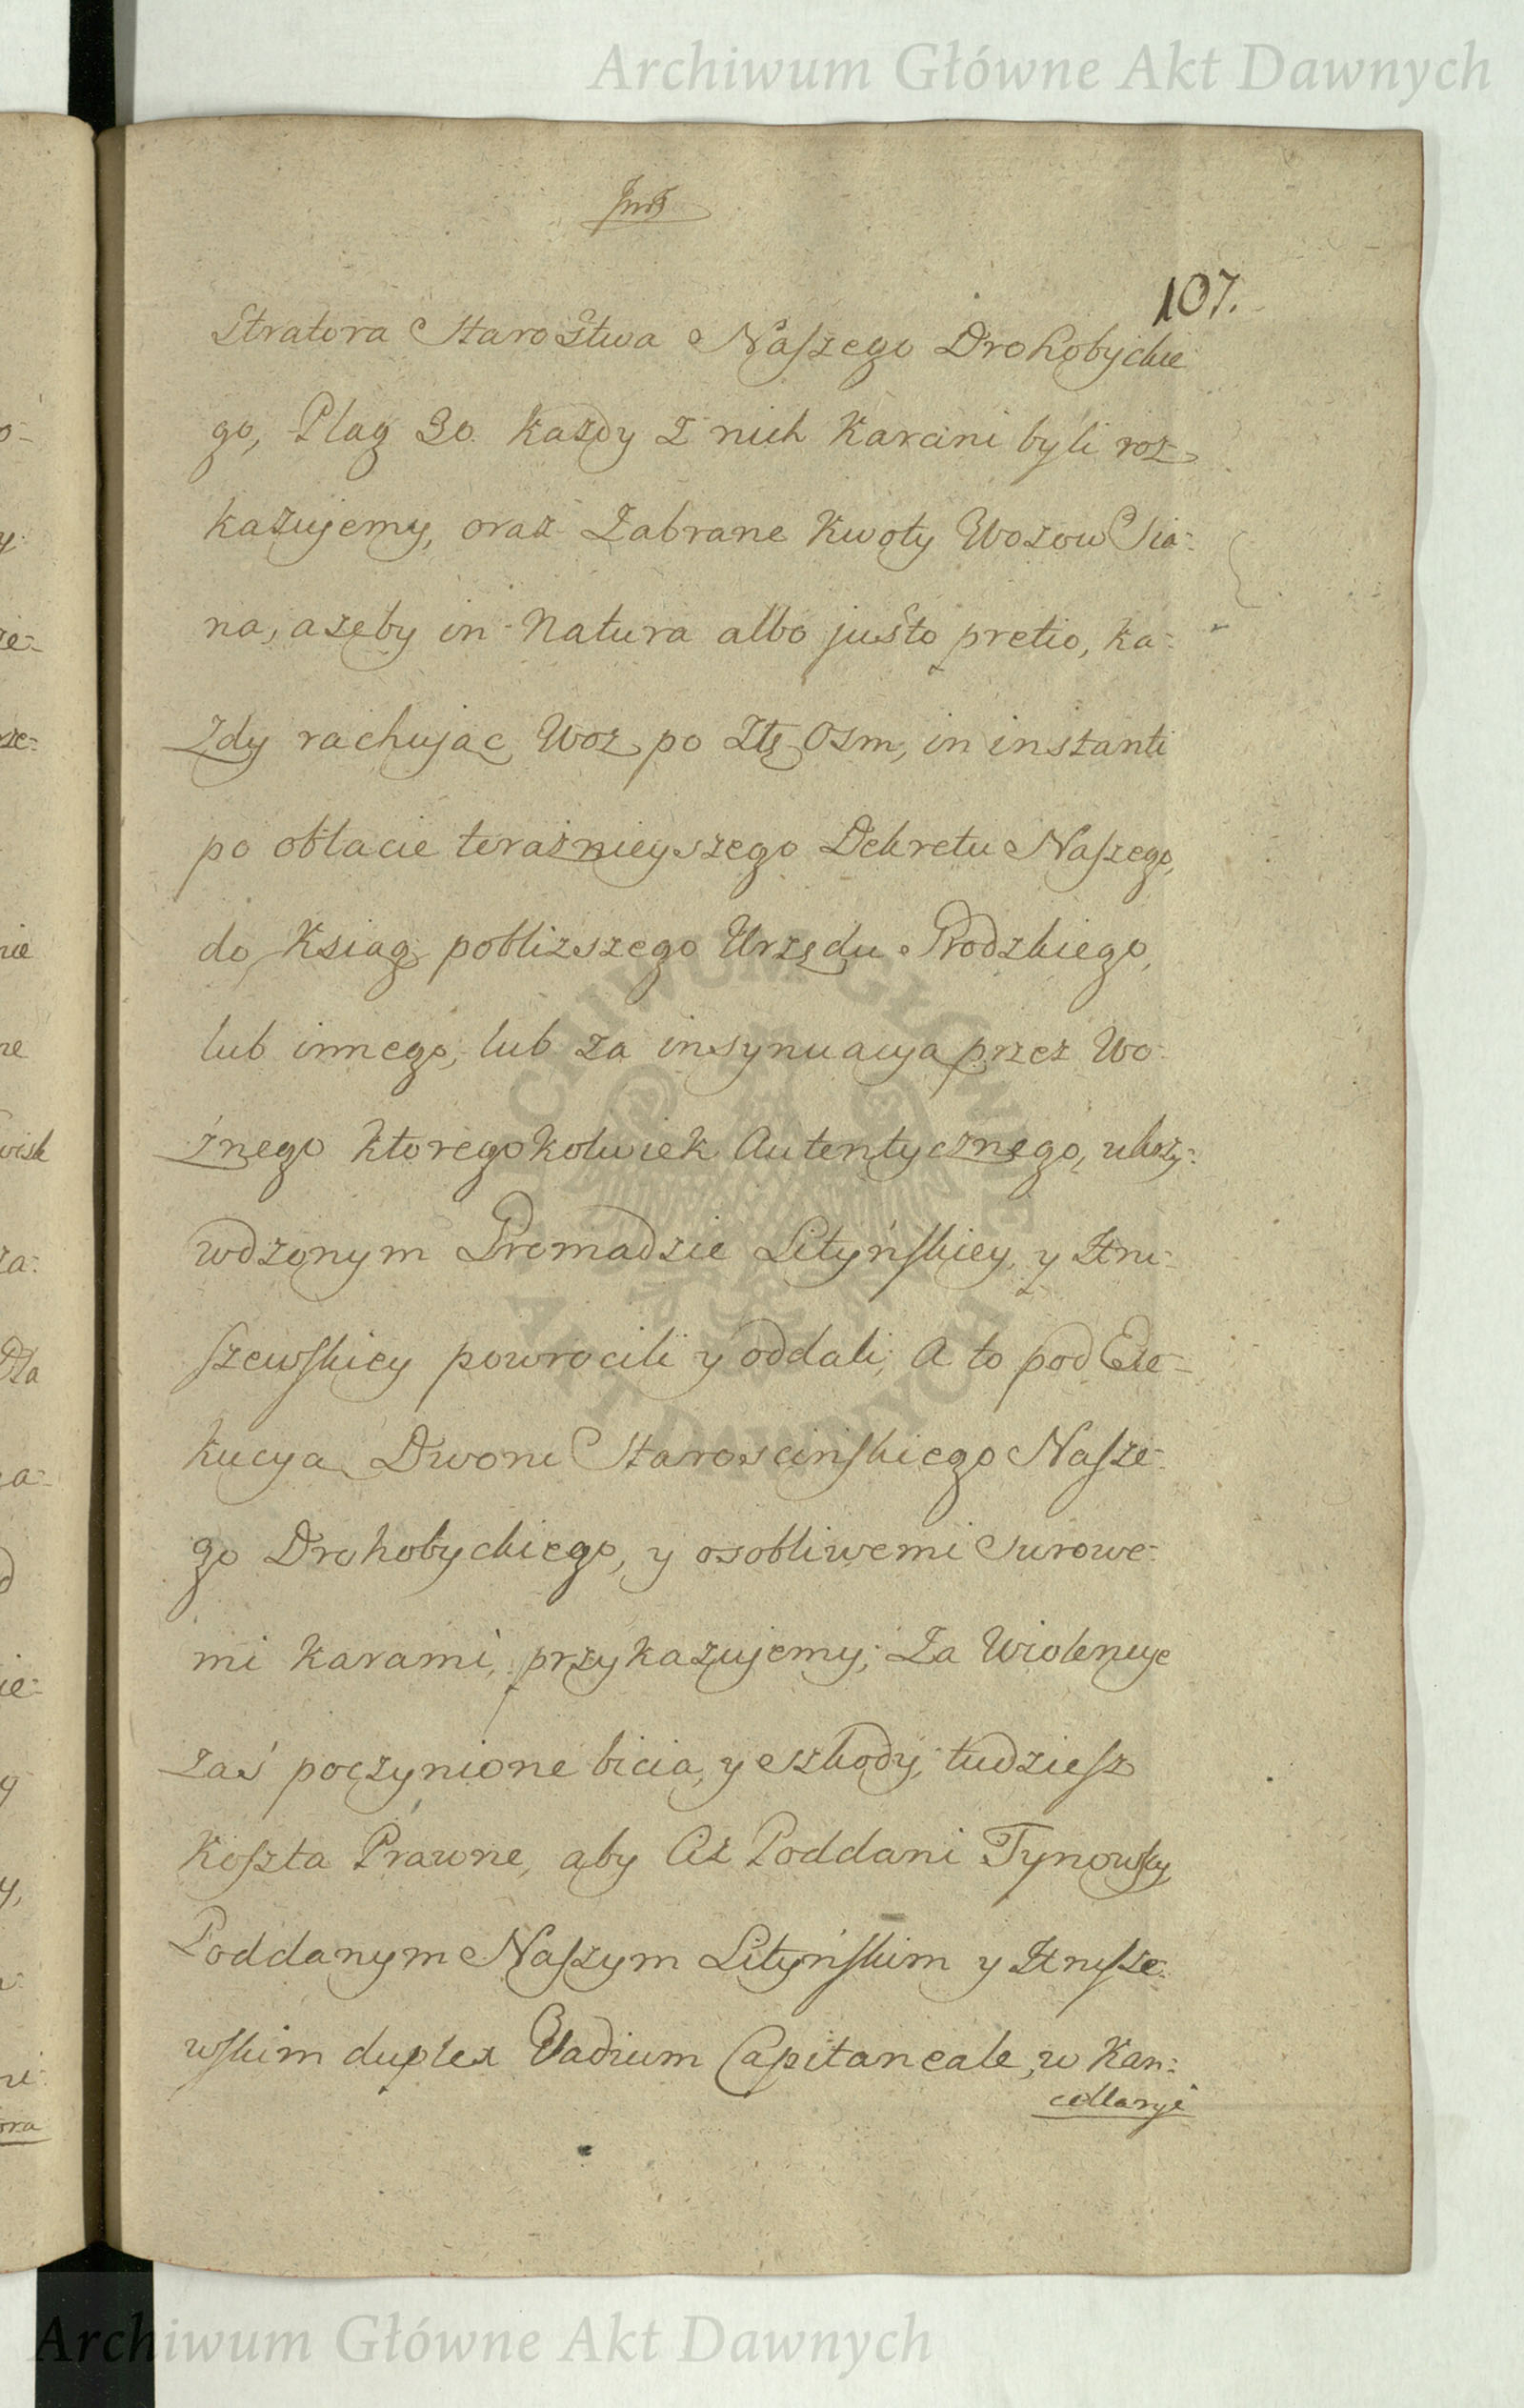 Archiwum Główne Akt Dawnych
107.
stratora Starostwa Naszego Drohobyckie
go, Plag 30. każdy z nich karani byli roz
kazujemy, oraz zabrane kwoty Wozow Sia-
na, azeby in Natura albo justo pretio, ka-
żdy rachując Woz po Złł Osm, in instanti
po oblacie teraznieyszego Dekretu Naszego,
do Ksiąg pobliższego Urzędu Grodzkiego,
lub innego, lub za insynuacyą przez Wo-
źnego ktoregokolwiek Autentycznego, ukrzy-
wdzonym Gromadzie Lityńskiey, y Hru-
szewskiey powrocili y oddali; A to pod Exe-
kucyą Dworu Starościńskiego Nasze-
go Drohobyckiego, y osobliwemi surowe-
mi karami, przykazujemy; Za Wiolencye
zaś poczynione bicia, y szkody, tudziesz
koszta Prawne, aby Ciż Poddani Tynowscy,
Poddanym Naszym Lityńskim y Hrusze-
wskim duplex Vadium Capitaneale, w Kan-
cellaryi
ARCHIWUM GŁÓWNE AKT DAWNYCH
Archiwum Główne Akt Dawnych